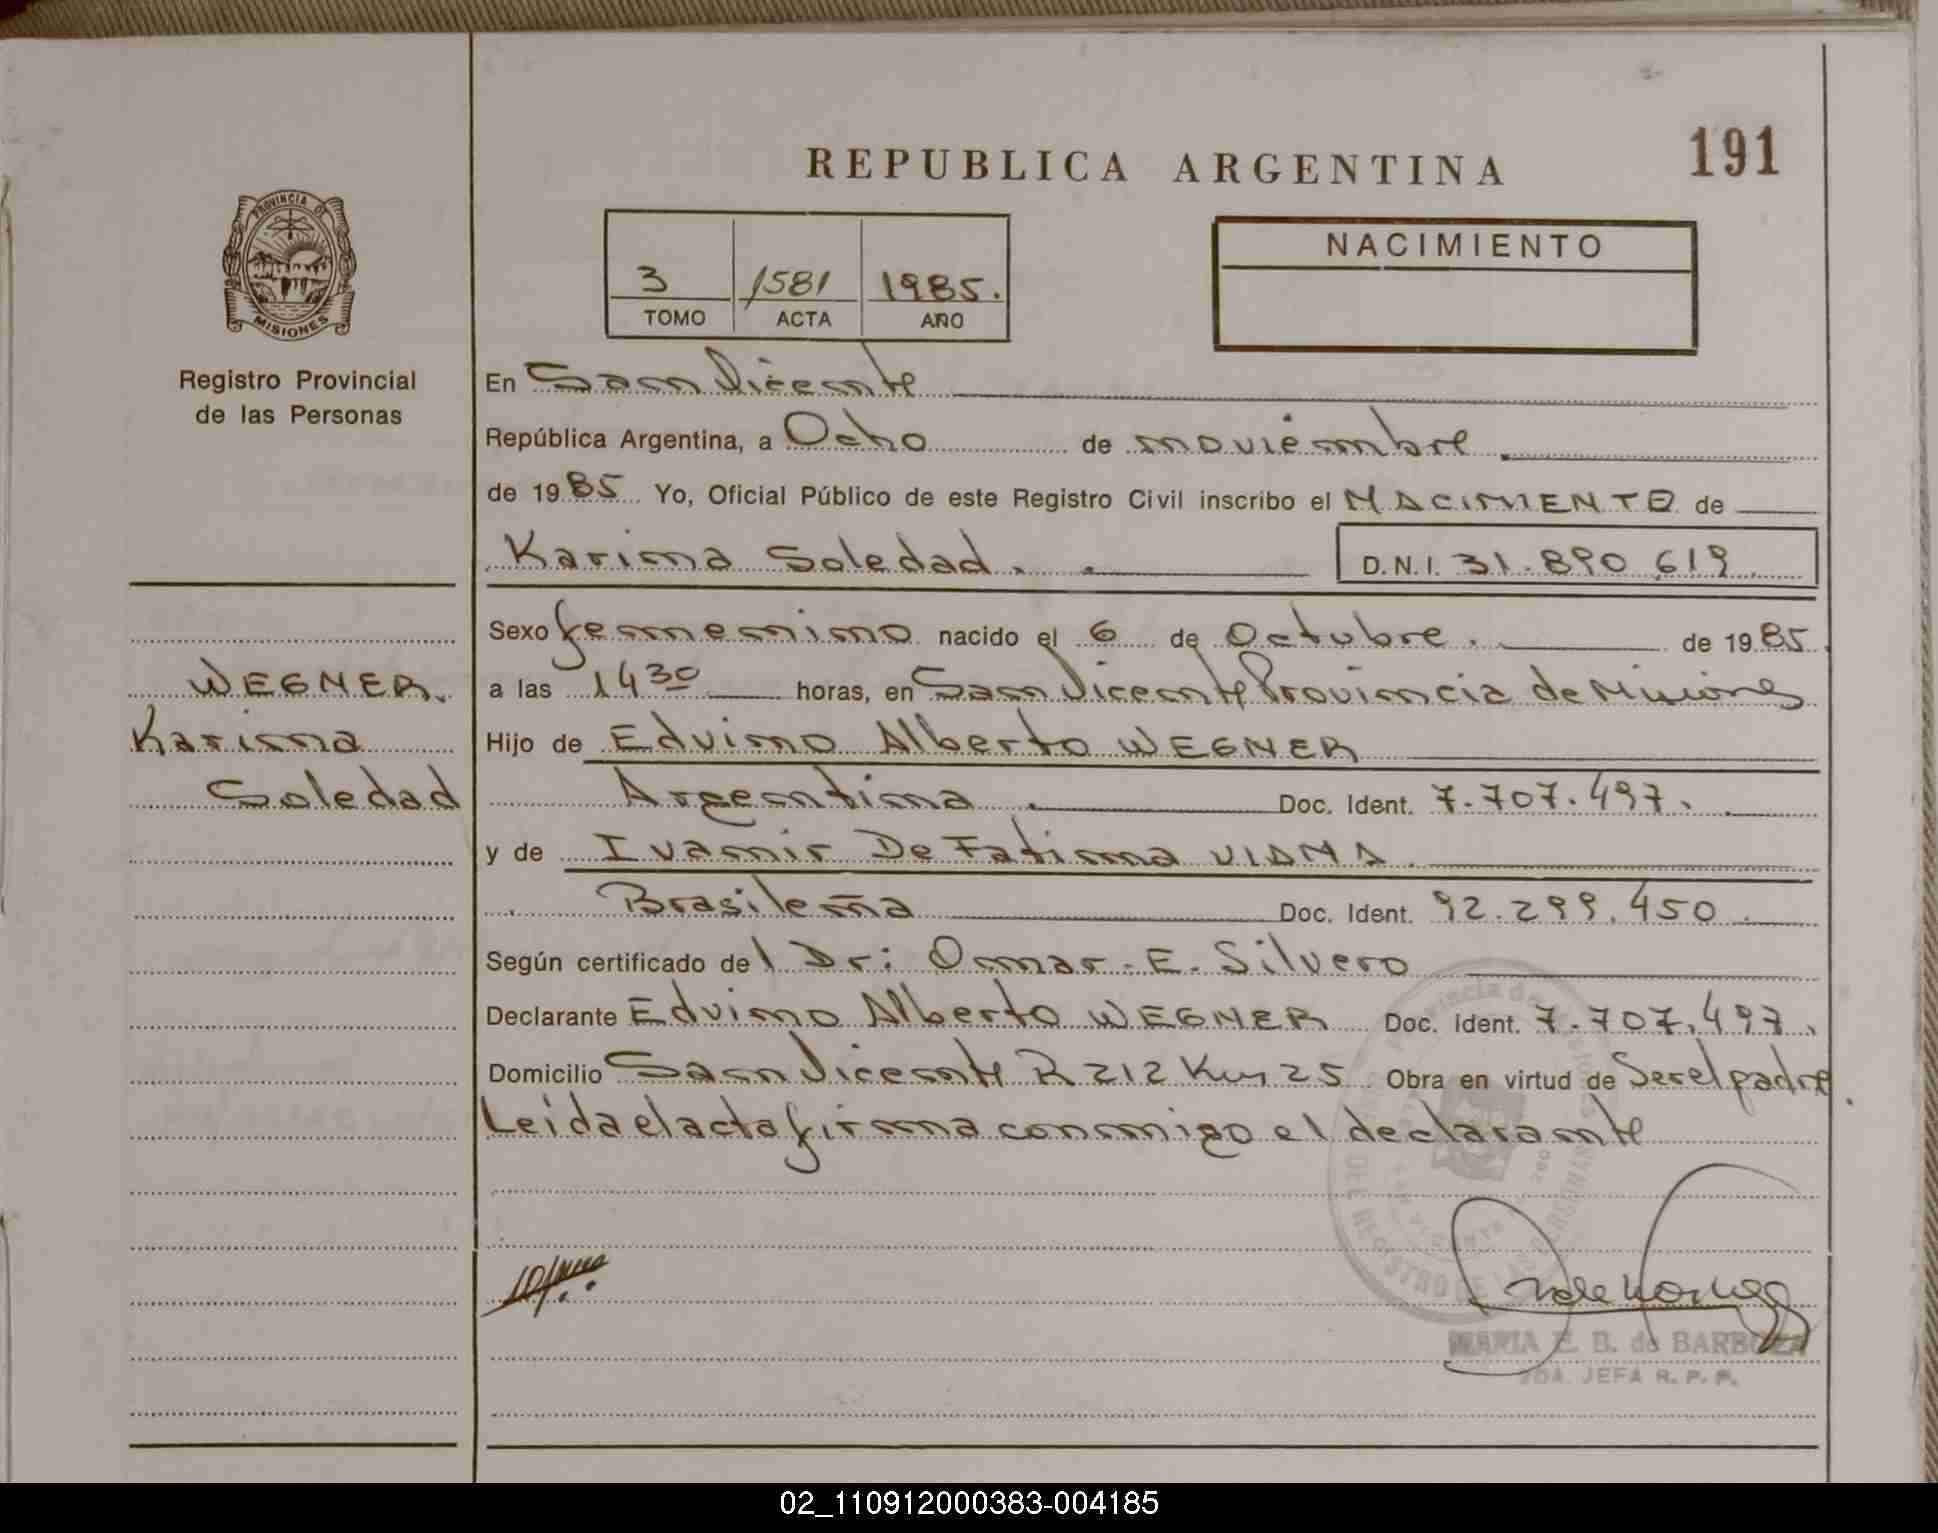 REPUBLICA ARGENTINA
191
PROVINCIA DE
MISIONES
Registro Provincial
de las Personas
3 1581 1985.
TOMO ACTA AÑO
NACIMIENTO
En San Vicente
República Argentina, a Ocho de noviembre.
de 1985 Yo, Oficial Público de este Registro Civil inscribo el NACIMIENTO de
Karina Soledad. D.N.I. 31.890.619
WEGNER.
Karina
Soledad
Sexo femenino nacido el 6 de Octubre. de 1985.
a las 14 30 horas, en San Vicente Provincia de Misiones
Hijo de Edvino Alberto WEGNER
Argentina. Doc. Ident. 7.707.497.
y de Ivanir De Fatima VIANA.
Brasileña Doc. Ident. 92.299.450.
Según certificado del Dr: Omar. E. Silvero
Declarante Edvino Alberto WEGNER Doc. Ident. 7.707.497.
Domicilio San Vicente R 212 Km 25 Obra en virtud de Ser el padre.
Leída el acta firma conmigo el declarante
MARIA E. B. de BARBOZA
JEFA R. P. P.
02_110912000383-004185